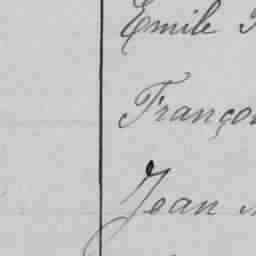 Emile
Franço
Jean